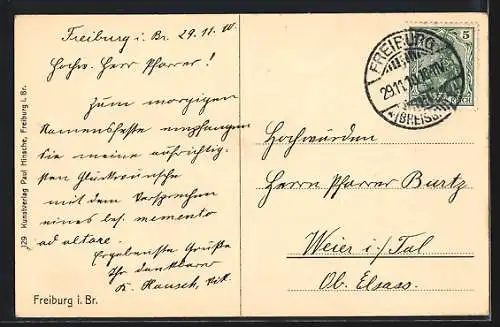 Freiburg i. Br. 29.11.10.
Hochw. Herr Pfarrer!
Zum morgigen
Namensfeste empfangen
Sie meine aufrichtig-
sten Glückwünsche
mit dem Versprechen
eines bes. memento
ad altare.
Ergebenste Grüße
Ihr dankbarer
K. Vik.
Freiburg i. Br.
129 Kunstverlag Paul Hinsche, Freiburg i. Br.
FREIBURG
29.11.10
(BREISGAU)
5
Hochwürden
Herrn Pfarrer Burtz
Weier i./Tal
Ob. Elsass.